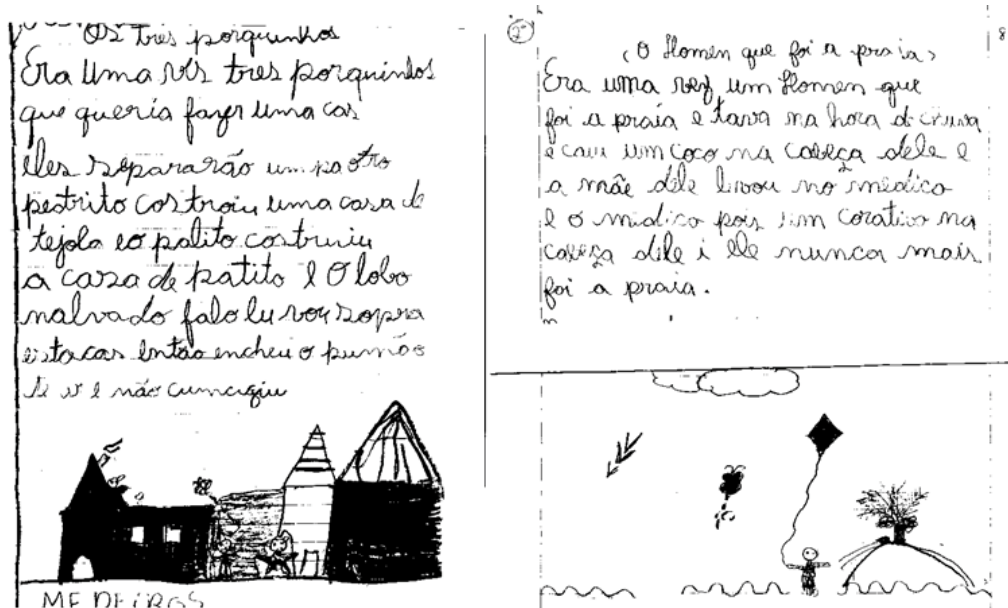 Os tres porquinhos
Era Uma vis tres porquinhos
que queria fazer uma cas
eles separarão um pa otro
pestrito costroiu uma casa de
tejola eo palito costruiu
a casa de patito e O lobo
malvado falo Eu vou sopra
estacas então encheu o pumão
de v e não cumcigiu
MEDEIROS
2ª
8
(O Homen que foi a praia)
Era uma vez um Homen que
foi a praia e tava na hora de chuva
e caiu um coco na cabeça dele e
a mãe dele livou no médico
e o midico pois um corativo na
cabeça dile i ele nunca mais
foi a praia.